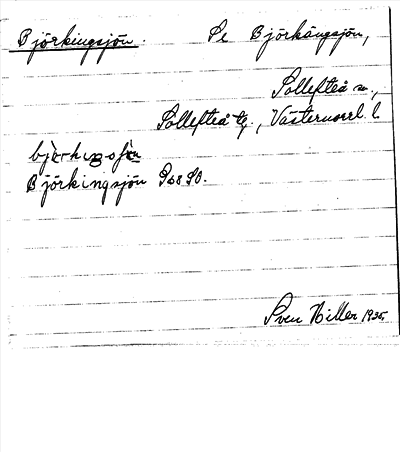 Björkingsjön. Se Björkängsjön,
Sollefteå sn.,
Sollefteå tg., Västernorrl. l.
Björkingsjön
Sven Hiller 1935.